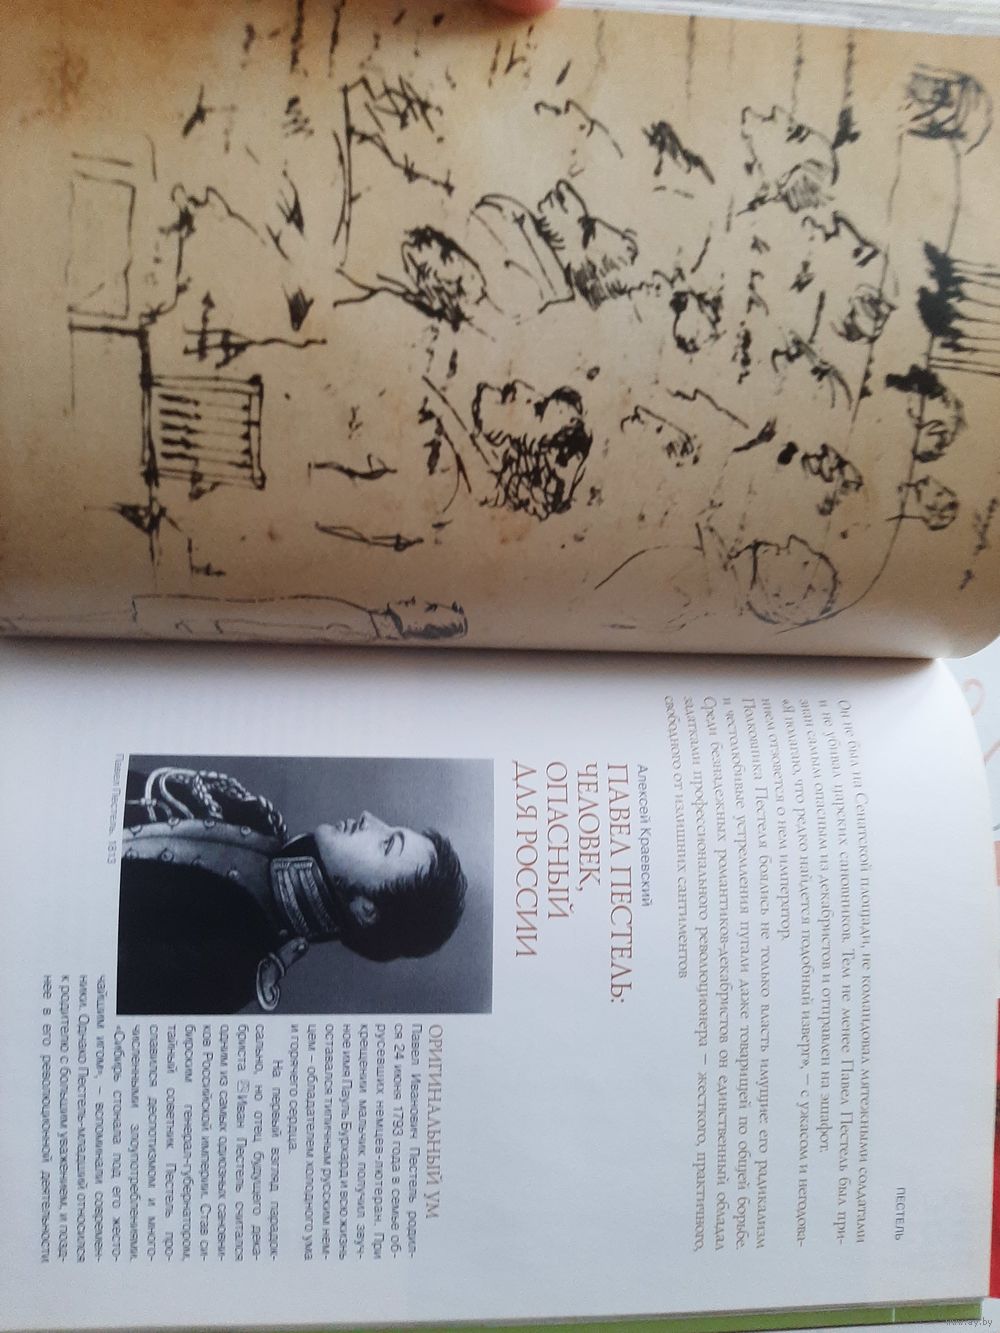 ПЕСТЕЛЬ
Он не был на Сенатской площади, не командовал мятежными солдатами
и не убивал царских сановников. Тем не менее Павел Пестель был при-
знан самым опасным из декабристов и отправлен на эшафот.
«Я полагаю, что редко найдется подобный изверг», – с ужасом и негодова-
нием отзовется о нем император.
Полковника Пестеля боялись не только власть имущие: его радикализм
и честолюбивые устремления пугали даже товарищей по общей борьбе.
Среди безнадежных романтиков-декабристов он единственный обладал
задатками профессионального революционера – жесткого, практичного,
свободного от излишних сантиментов
Алексей Краевский
ПАВЕЛ ПЕСТЕЛЬ:
ЧЕЛОВЕК,
ОПАСНЫЙ
ДЛЯ РОССИИ
Павел Пестель, 1813
ОРИГИНАЛЬНЫЙ УМ
Павел Иванович Пестель родил-
ся 24 июня 1793 года в семье об-
русевших немцев-лютеран. При
крещении мальчик получил звуч-
ное имя Пауль Бурхард и всю жизнь
оставался типичным русским нем-
цем – обладателем холодного ума
и горячего сердца.
На первый взгляд парадок-
сально, но отец будущего дека-
бриста Иван Пестель считался
одним из самых одиозных сановни-
ков Российской империи. Став си-
бирским генерал-губернатором,
тайный советник Пестель про-
славился деспотизмом и много-
численными злоупотреблениями.
«Сибирь стонала под его жесто-
чайшим игом», – вспоминали современ-
ники. Однако Пестель-младший относился
к родителю с большим уважением, и позд-
нее в его революционной деятельности
www.ay.by